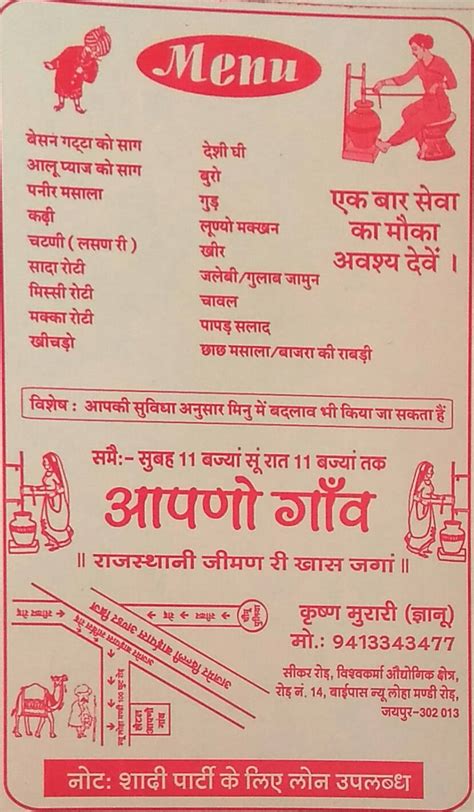 Menu
बेसन गट्टा को साग
आलू प्याज को साग
पनीर मसाला
कढ़ी
चटणी ( लसण री )
सादा रोटी
मिस्सी रोटी
मक्का रोटी
खीचड़ो
देशी घी
बुरो
गुड़
लूण्यो मक्खन
खीर
जलेबी/गुलाब जामुन
चावल
पापड़ सलाद
छाछ मसाला/बाजरा की राबड़ी
एक बार सेवा
का मौका
अवश्य देवें ।
विशेष : आपकी सुविधा अनुसार मिनु में बदलाव भी किया जा सकता हैं
समै:- सुबह 11 बज्यां सूं रात 11 बज्यां तक
आपणो गाँव
॥ राजस्थानी जीमण री खास जगां ॥
कृष्ण मुरारी (ज्ञानू)
मो.: 9413343477
सीकर रोड़, विश्वकर्मा औद्योगिक क्षेत्र,
रोड़ नं. 14, बाईपास न्यू लोहा मण्डी रोड़,
जयपुर-302 013
सीकर रोड़
सीकर रोड़
न्यू लोहा मण्डी 100 फुट रोड़
होटल
आपणो
गांव
नोट: शादी पार्टी के लिए लोन उपलब्ध